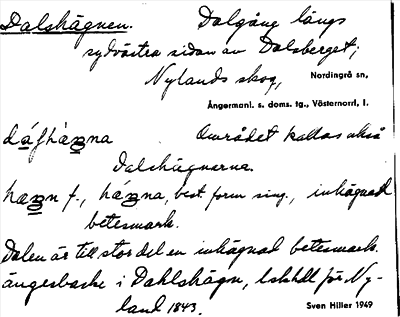 Dalshägnen. Dalgång längs
sydvästra sidan av Dalsberget;
Nylands skog, Nordingrå sn,
Ångermanl. s. doms. tg., Västernorrl, l.
Området kallas också
Dalshägnarna.
hæŋn f., best. form sing., inhägnad
betesmark.
Dalen är till stor del en inhägnad betesmark.
ängesbacke i Dahlshägn, lskhdl för Ny-
land 1843. Sven Hiller 1949